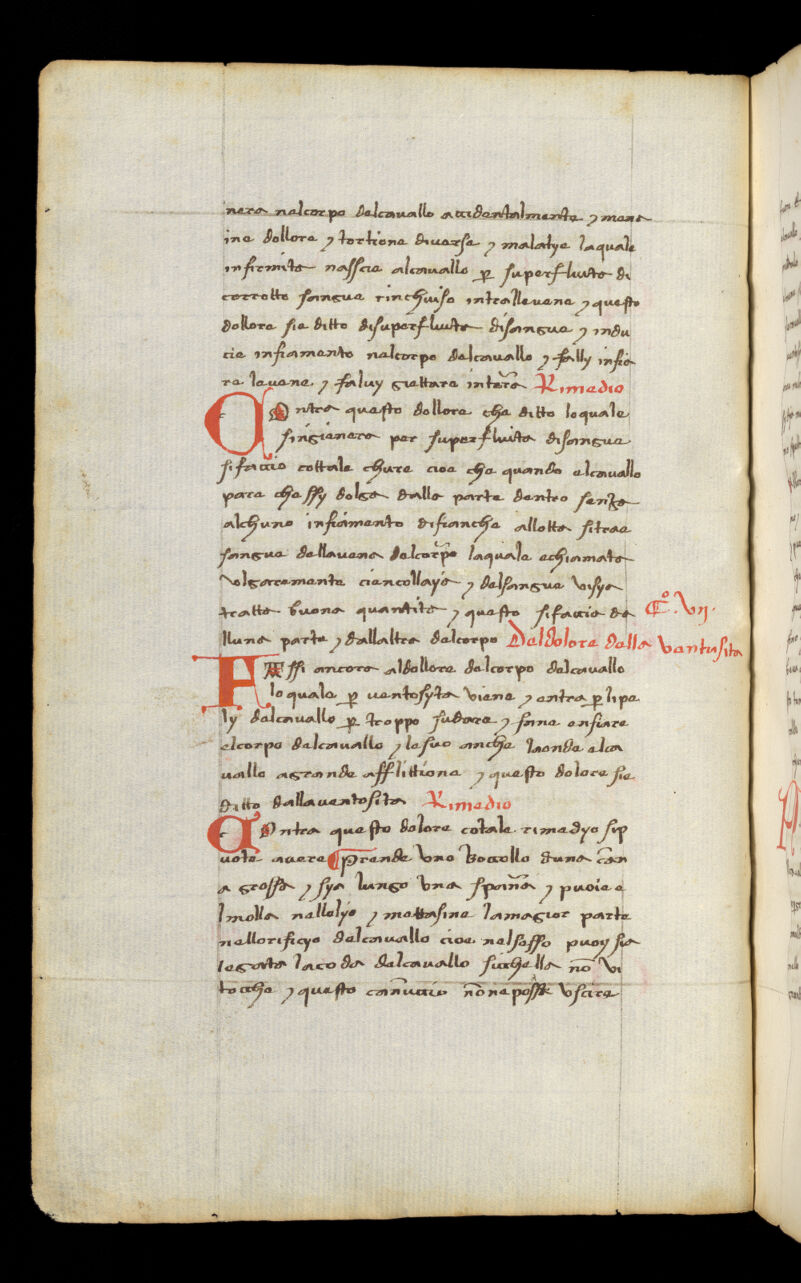 nera nelcorpo delcauallo accidentalmente ⁊ mena
ine dollore ⁊ tortione diuerse ⁊ malatye laquale
infirmita nasscie alcauallo ꝑ superfluita di
corrotto sangue rinchiuso intralleuene ⁊ questo
dollore sie ditto disuperfluita disangue ⁊ indu
cie infiamento nelcorpo delcauallo ⁊ fally infia
re leuene ⁊ faluy giettare interra Rimedio
COntra questo dollore che ditto loquale
singienera per superfluita disangue
sifaccio cottale chure cioe che quando elcauallo
pare chessy dolga dalla parte dentro senza
alchuno infiamento difianche allotta sitrae
sangue dellauena delcorpo laquale echiamata
volgaremente ciencollaya ⁊ delsangue visya
tratta buona quantita ⁊ questo sifaccia da
lluna parte ⁊ dallaltra delcorpo Deldolore della Ventusita
Cº. Vij.
FAssi ancora aldollore delcorpo delcauallo
loquale ꝑ uentosyta viene ⁊ entra ꝑ lipe
ly delcauallo ꝑ troppo sudare ⁊ fanne enfiare
elcorpo delcauallo ⁊ lesuo anche laonde elca
uallo agrande afflittione ⁊ questo dolore sie
ditto dallauentosita Rimedio
COntra questo dolore cotale rimedyo sip
uote auere Prende vno Boccollo duna can
a grossa ⁊ sya lungo vna spanna ⁊ puoie e
lmolla nellolyo ⁊ mettasine lamagior parte
nellorificyo delcauallo cioe nelsesso puoy sia
legata lacoda delcauallo sicchella nō vi
tocche ⁊ questo cannuccio nōne possa vscire